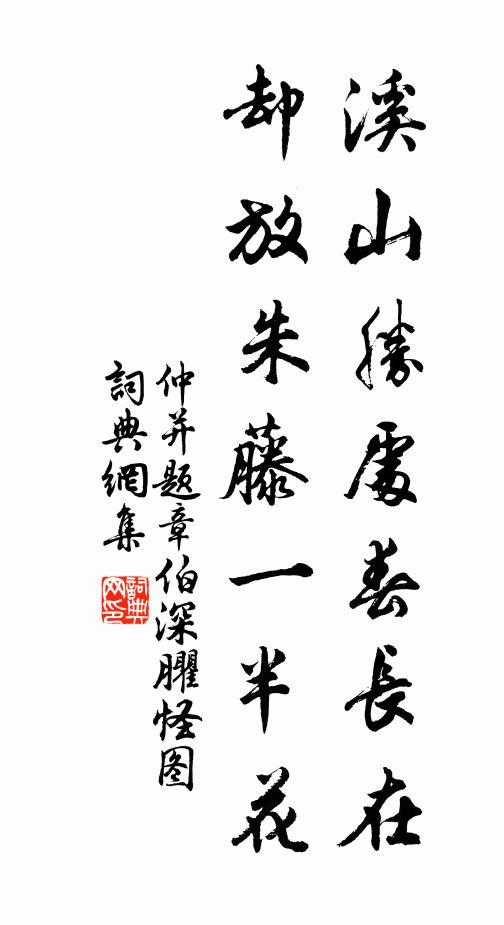 溪山勝處春長在
却放朱藤一半花
仲并题章伯深臞怪图
詞典網集
詞典網印